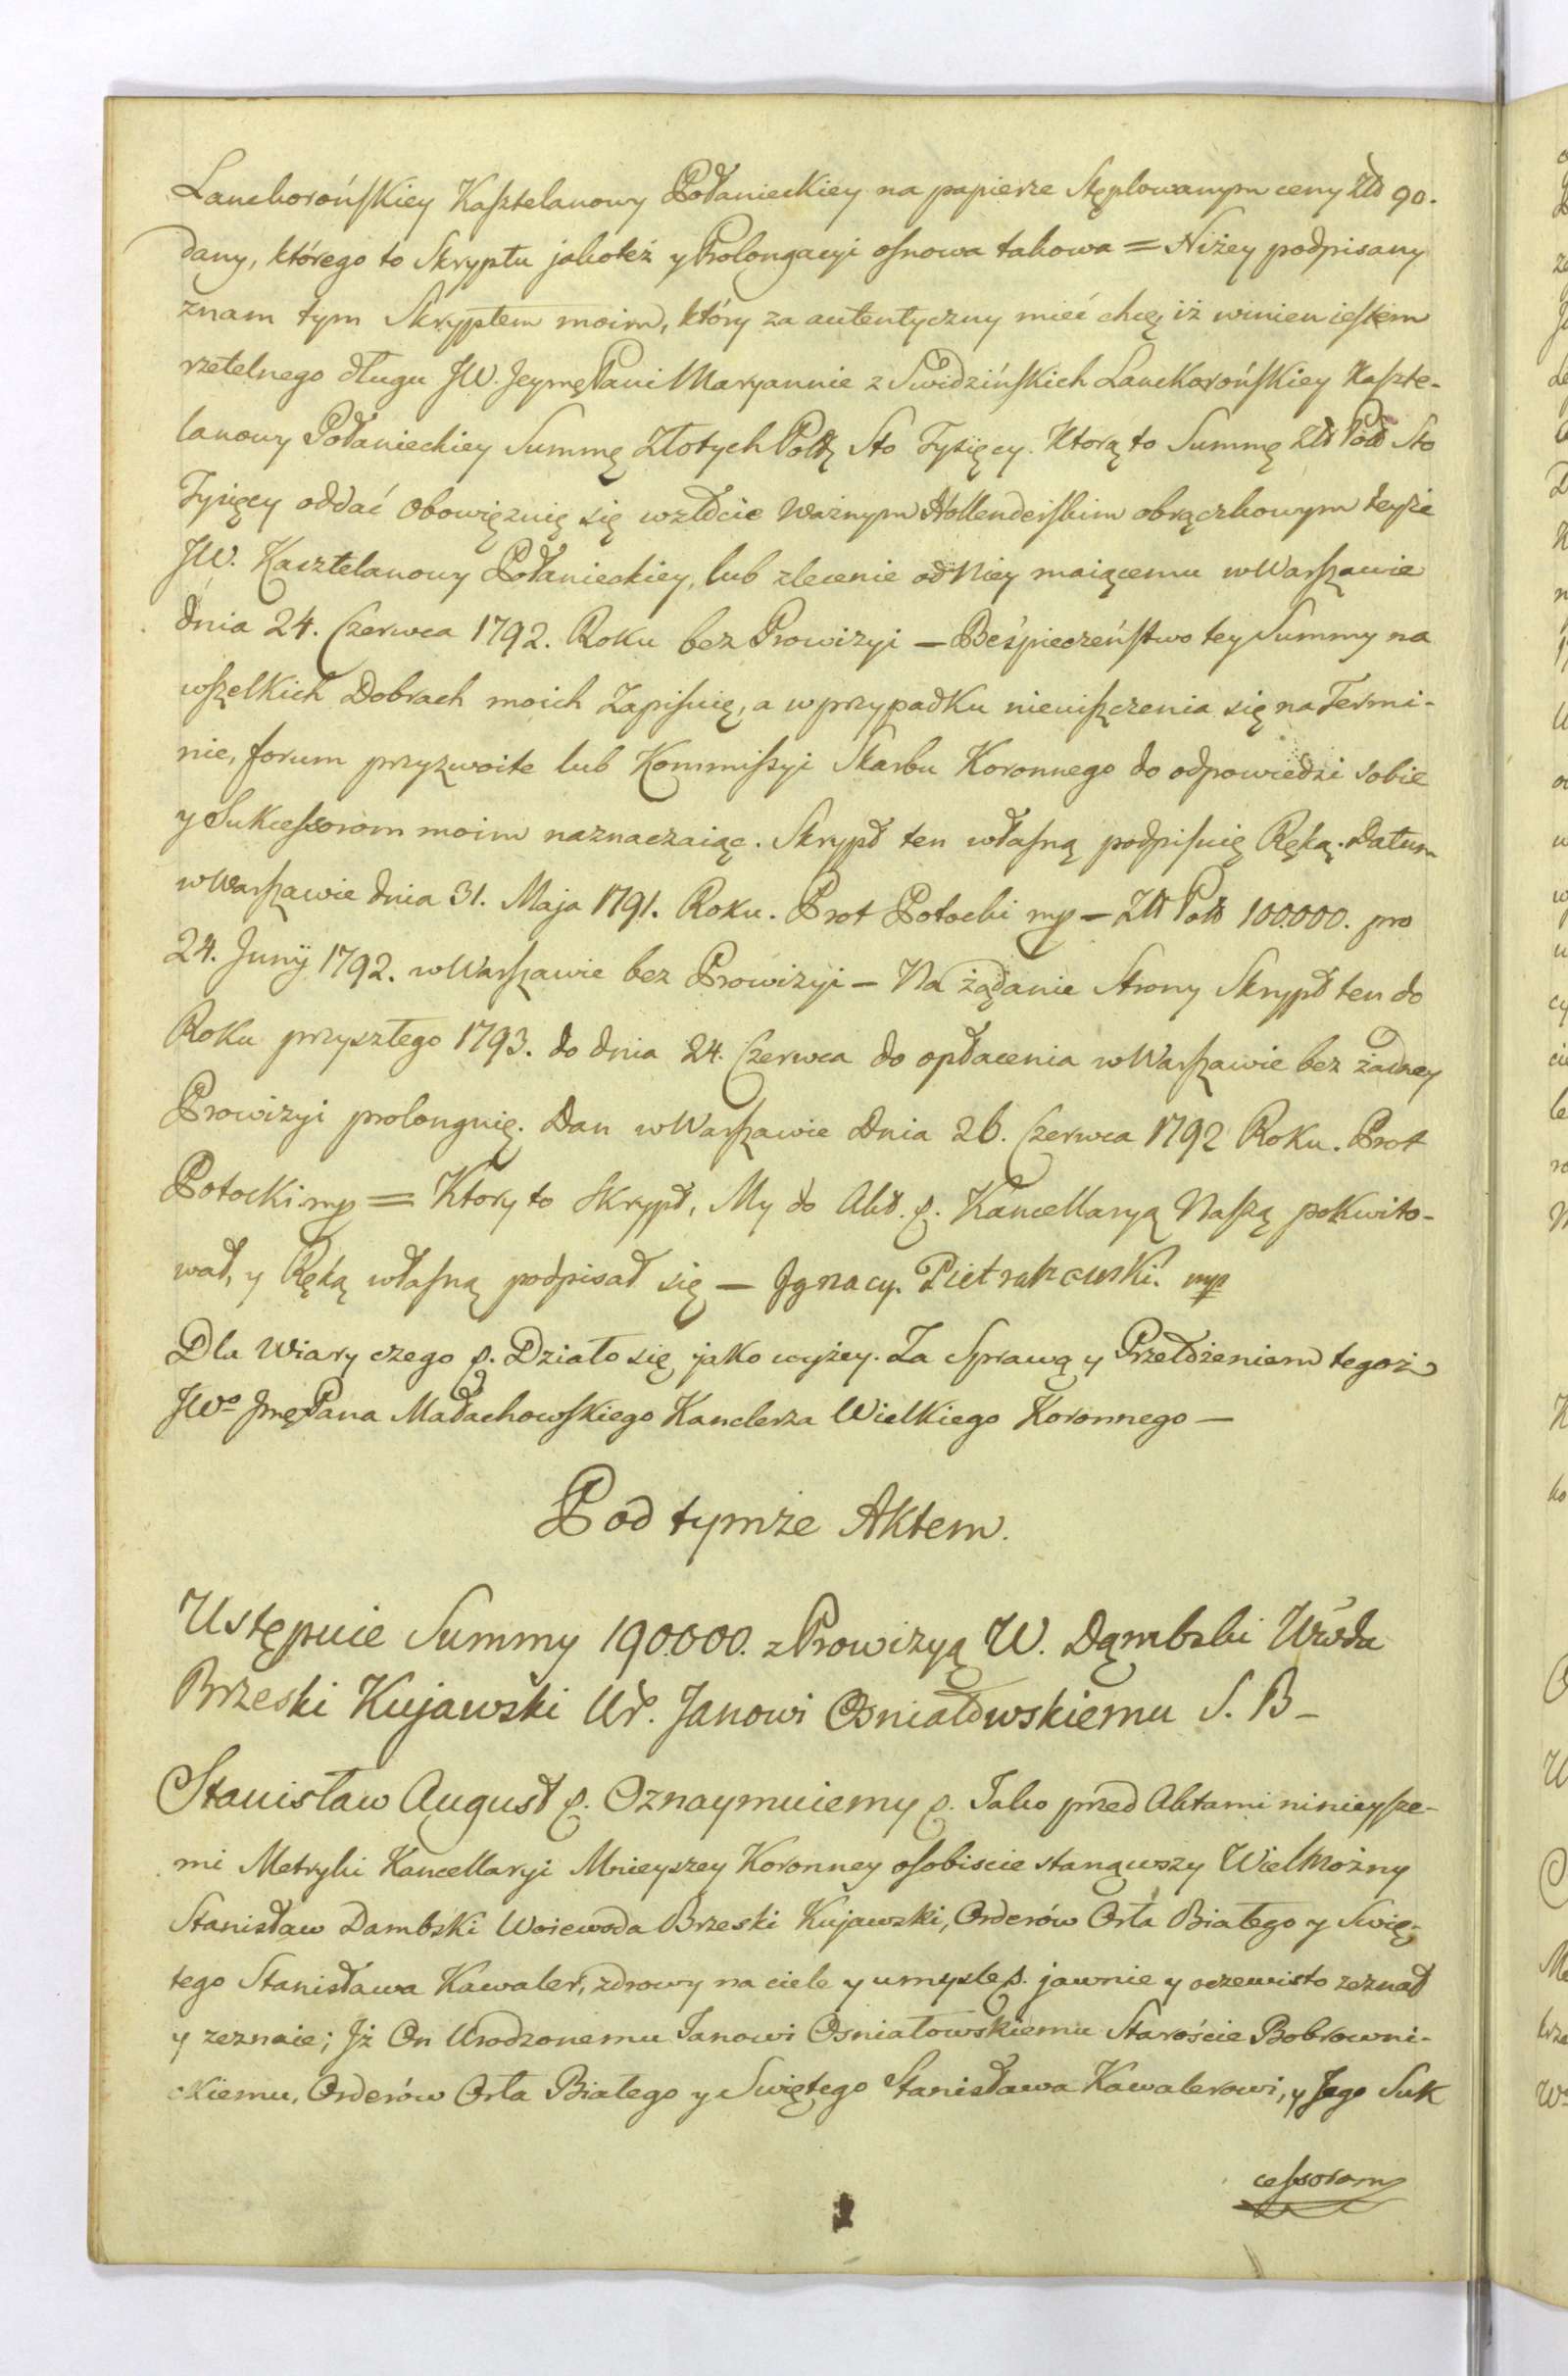 Lanckorońskiey Kasztelanowy Połanieckiey na papierze Stęplowanym ceny Złł 90.
dany, którego to Skryptu jakoteż y Prolongacyi osnowa takowa = Niżey podpisany
znam tym Skryptem moim, który za autentyczny mieć chcę iż winien iestem
rzetelnego długu JW. Jeymę Pani Maryannie z Swidzińskich Lanckorońskiey Kaszte-
lanowy Połanieckiey Summę Złotych Polł Sto Tysięcy. Ktorą to Summę Złł Polł Sto
Tysięcy oddać obowięzuię się w złocie ważnym Hollenderskim obrączkowym teyże
JW. Kasztelanowy Połanieckiey, lub zlecenie od Niey maiącemu w Warszawie
dnia 24. Czerwca 1792. Roku bez Prowizyi — Beśpieczeństwo tey Summy na
wszelkich Dobrach moich Zapisuię, a w przypadku nieuiszczenia się na Termi-
nie, forum przyzwoite lub Kommissyi Skarbu Koronnego do odpowiedzi sobie
y Sukcessorom moim naznaczaiąc. Skrypt ten własną podpisuię Ręką. Datum
w Warszawie dnia 31. Maja 1791. Roku. Prot Potocki mp — Złł Polł 100.000. pro
24. Junij 1792. w Warszawie bez Prowizyi — Na żądanie Strony Skrypt ten do
Roku przyszłego 1793. do dnia 24. Czerwca do opłacenia w Warszawie bez żadney
Prowizyi prolonguię. Dan w Warszawie Dnia 26. Czerwca 1792 Roku. Prot
Potocki mp = Ktory to Skrypt, My do Akt. p. Kancellaryą Naszą pokwito-
wał, y Ręką własną podpisał się — Jgnacy. Pietrakowski. mp
Dla Wiary czego p. Działo się jako wyżey. Za Sprawą y Przełożeniem tegoż
JWo Jmę Pana Małachowskiego Kanclerza Wielkiego Koronnego —
Pod tymże Aktem.
Ustępuie Summy 190.000. z Prowizyą W. Dąmbski Wwda
Brzeski Kujawski Ur. Janowi Osniałowskiemu S. B –
Stanisław August p. Oznaymuiemy p. Jako przed Aktami ninieysze-
mi Metryki Kancellaryi Mnieyszey Koronney osobiscie stanąwszy Wielmożny
Stanisław Dambski Woiewoda Brzeski Kujawski, Orderów Orła Białego y Swię-
tego Stanisława Kawaler, zdrowy na ciele y umysle p. jawnie y oczewisto zeznał
y zeznaie; Jż On Urodzonemu Janowi Osniałowskiemu Staroście Bobrowni-
ckiemu, Orderów Orła Białego y Swiętego Stanisława Kawalerowi, y Jego Suk
cessorom